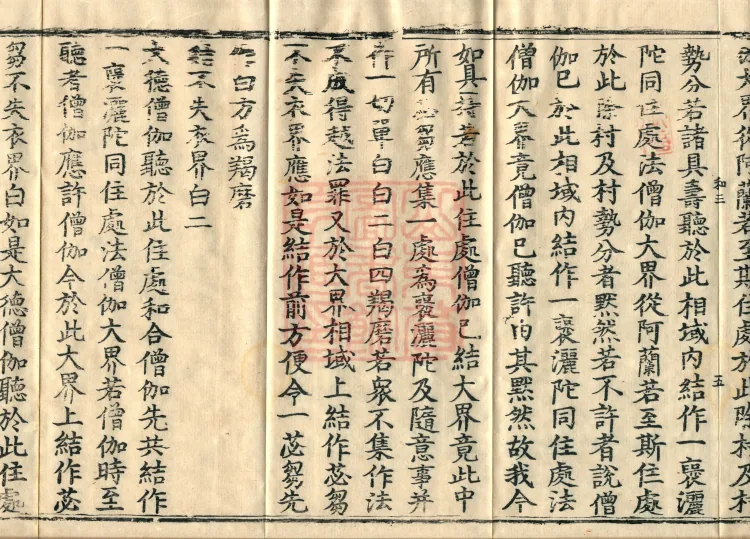 大界從阿蘭若至斯住處於此除村及村
勢分若諸具壽聽於此相域內結作一褒灑
陀同住處法僧伽大界從阿蘭若至斯住處
於此除村及村勢分者默然若不許者說僧
伽已於此相域內結作一褒灑陀同住處法
僧伽大界竟僧伽已聽許由其默然故我今
如是持若於此住處僧伽已結大界竟此中
所有苾芻應集一處為褒灑陀及隨意事并
作一切單白白二白四羯磨若衆不集作法
不成得越法罪又於大界相域上結作苾芻
不失衣界應如是結作前方便令一苾芻先
白方為羯磨
結不失衣界白二
大德僧伽聽於此住處和合僧伽先共結作
一褒灑陀同住處法僧伽大界若僧伽時至
聽者僧伽應許僧伽今於此大界上結作苾
芻不失衣界白如是大德僧伽聽於此住處
和三
五